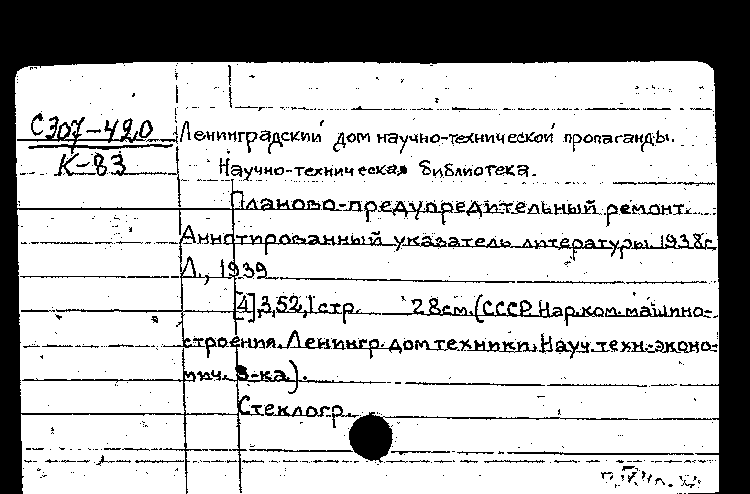 С307-420
К-83
Ленинградский дом научно-технической пропаганды.
Научно-техническая библиотека.
Планово-предупредительный ремонт.
Аннотированный указатель литературы 1938г.
Л., 1939
[4],3,52,1 стр. 28см. (СССР. Нар.ком. машино-
строения. Ленингр. дом техники. Науч. техн.-эконо-
мич. б-ка).
Стеклогр.